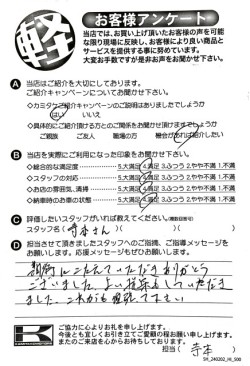 軽
お客様アンケート
当店では、お買い上げ頂いたお客様の声を可能
な限り現場に反映し、お客様により良い商品と
サービスを提供する事に努めています。
大変お手数ですが是非お声をお聞かせ下さい。
A 当店はご紹介を大切にしております。
ご紹介キャンペーンについてお聞かせ下さい。
◇カミタケご紹介キャンペーンのご説明はありましたでしょうか
はい いいえ
◇具体的にご紹介頂ける方とのご関係をお聞かせ頂けますでしょうか
ご親族 ご友人 職場の方 機会があれば紹介したい
B 当店を実際にご利用になった印象をお聞かせ下さい。
◇総合的な満足度 5.大満足 4.満足 3.ふつう 2.やや不満 1.不満
◇スタッフの対応 5.大満足 4.満足 3.ふつう 2.やや不満 1.不満
◇お店の雰囲気、清掃 5.大満足 4.満足 3.ふつう 2.やや不満 1.不満
◇納車時のお車の状態 5.大満足 4.満足 3.ふつう 2.やや不満 1.不満
C 評価したいスタッフがいれば教えてください。(複数回答可)
スタッフ名( 寺本さん )( )( )
D 担当させて頂きましたスタッフへのご指摘、ご指導メッセージを
お願いします。応援メッセージもぜひお願いします。
期待にこたえていただきありがとう
ございました。よい提案もしていただき
ました。これからも頑張って下さい
ご協力に心よりお礼を申し上げます。
今後とも宜しくお引き立てご愛顧の程お願い申し上げます。
またのご来店を心からお待ちしております。
担当( 寺本 )